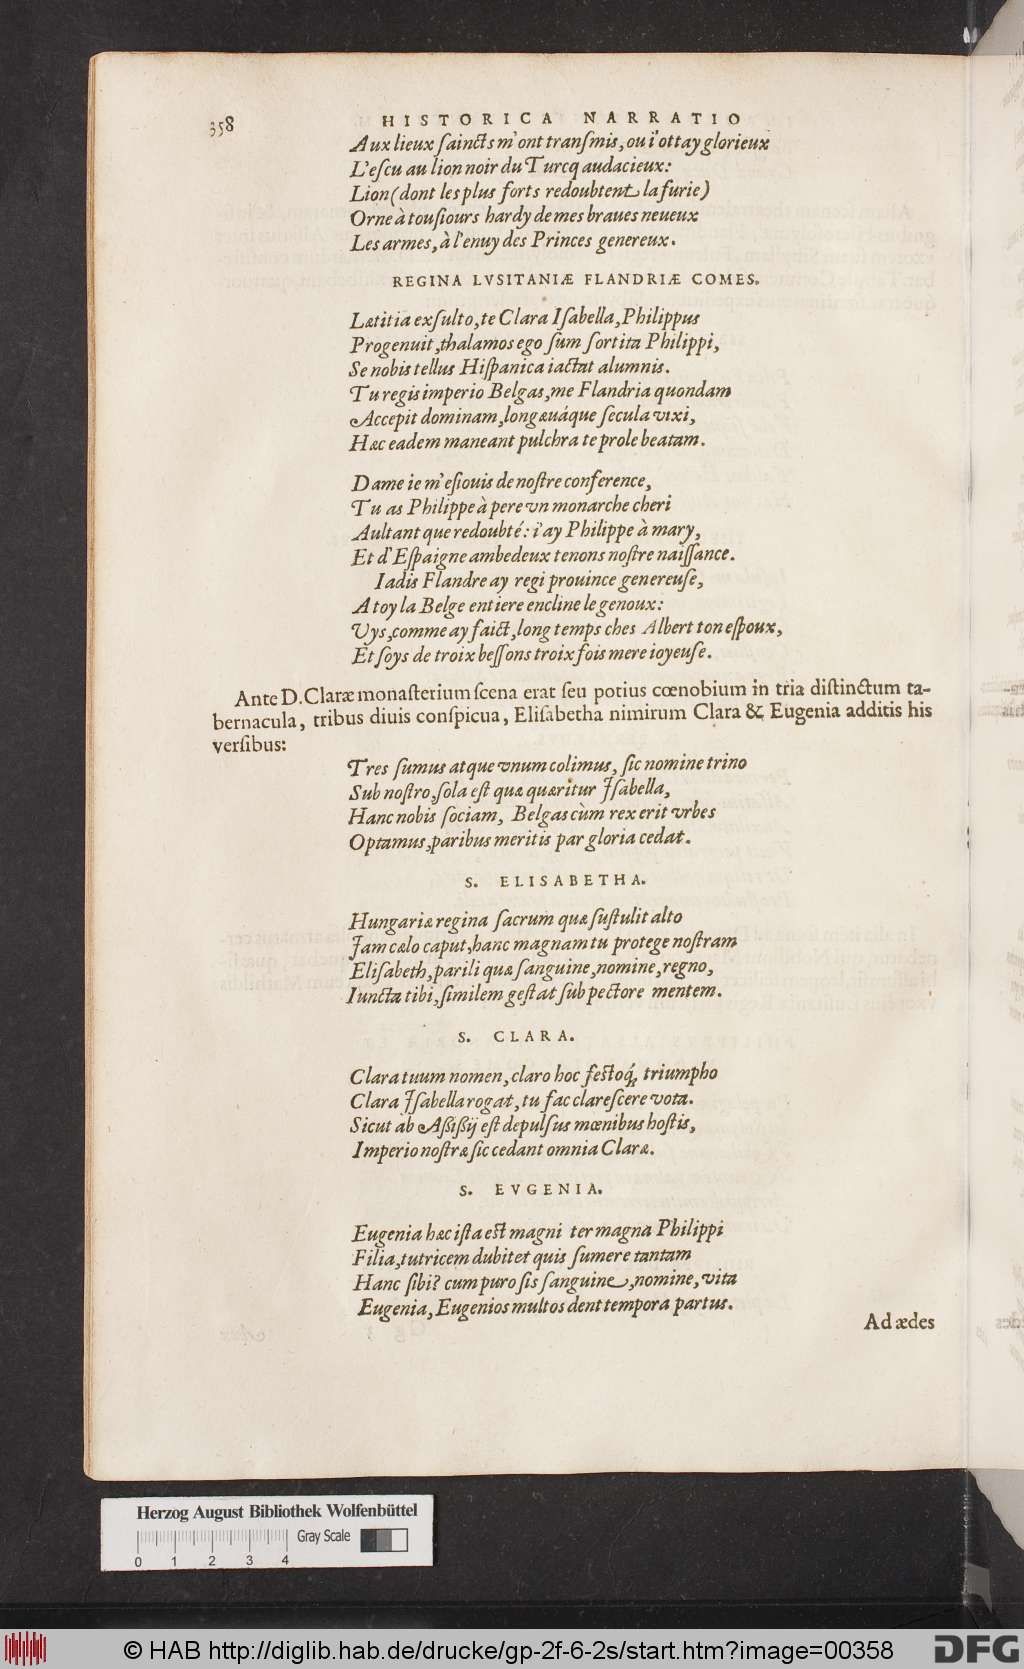 358 HISTORICA NARRATIO
Aux lieux ſaincts m'ont tranſmis, ou i'ottay glorieux
L'eſcu au lion noir du Turcq audacieux:
Lion (dont les plus forts redoubtent la furie)
Orne à touſiours hardy de mes braues neueux
Les armes, à l'enuy des Princes genereux.
REGINA LVSITANIÆ FLANDRIÆ COMES.
Lætitia exſulto, te Clara Iſabella, Philippus
Progenuit, thalamos ego ſum ſortita Philippi,
Se nobis tellus Hiſpanica iactat alumnis.
Tu regis imperio Belgas, me Flandria quondam
Accepit dominam, longæuáque ſecula vixi,
Hæc eadem maneant pulchra te prole beatam.
Dame ie m'eſiouis de noſtre conference,
Tu as Philippe à pere vn monarche cheri
Aultant que redoubté: i'ay Philippe à mary,
Et d'Eſpaigne ambedeux tenons noſtre naiſſance.
Iadis Flandre ay regi prouince genereuſe,
A toy la Belge entiere encline le genoux:
Vys, comme ay faict, long temps ches Albert ton eſpoux,
Et ſoys de troix beſſons troix fois mere ioyeuſe.
Ante D. Claræ monaſterium ſcena erat ſeu potius cœnobium in tria diſtinctum ta-
bernacula, tribus diuis conſpicua, Eliſabetha nimirum Clara & Eugenia additis his
verſibus:
Tres ſumus atque vnum colimus, ſic nomine trino
Sub noſtro, ſola eſt quæ quæritur Iſabella,
Hanc nobis ſociam, Belgas cùm rex erit vrbes
Optamus, paribus meritis par gloria cedat.
S. ELISABETHA.
Hungariæ regina ſacrum quæ ſuſtulit alto
Jam cælo caput, hanc magnam tu protege noſtram
Eliſabeth, parili quæ ſanguine, nomine, regno,
Iuncta tibi, ſimilem geſtat ſub pectore mentem.
S. CLARA.
Clara tuum nomen, claro hoc feſtoq́; triumpho
Clara Jſabella rogat, tu fac clareſcere vota.
Sicut ab Aßißij eſt depulſus mœnibus hoſtis,
Imperio noſtræ ſic cedant omnia Claræ.
S. EVGENIA.
Eugenia hæc iſta eſt magni ter magna Philippi
Filia, tutricem dubitet quis ſumere tantam
Hanc ſibi? cum puro ſis ſanguine, nomine, vita
Eugenia, Eugenios multos dent tempora partus.
Ad ædes
Herzog August Bibliothek Wolfenbüttel
Gray Scale
0 1 2 3 4
© HAB http://diglib.hab.de/drucke/gp-2f-6-2s/start.htm?image=00358
DFG